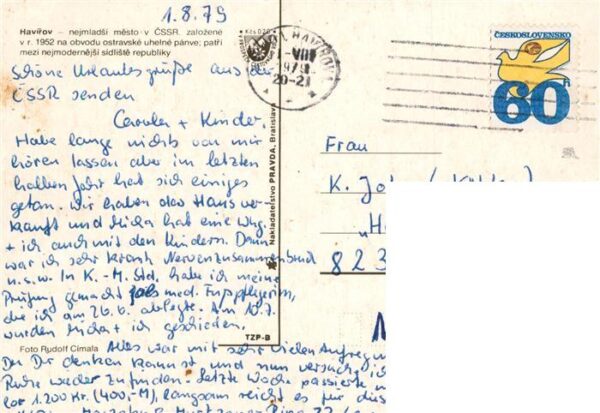 1.8.79
Havířov – nejmladší město v ČSSR. založené
v r. 1952 na obvodu ostravské uhelné pánve; patří
mezi nejmodernější sídliště republiky
Kčs 0,70
HAVÍŘOV
-VIII
20-21
ČESKOSLOVENSKO
60 h
Schöne Urlaubsgrüße aus der
ČSSR senden
+ Kinder.
Habe lange nichts von mir
hören lassen aber im letzten
halben Jahr hat sich einiges
getan. Wir haben das Haus ver-
kauft und Micha hat eine Whg.
+ ich auch mit den Kindern. Dann
war ich sehr krank Nervenzusammenbruch
u.s.w. In K.-M.-Std. habe ich meine
Prüfung gemacht als med. Fußpflegerin,
die ich am 26.6. ablegte. Am 10.7.
wurden Micha + ich geschieden.
Nakladatelstvo PRAVDA, Bratislava
TZP-B
Foto Rudolf Cimala
Alles war mit sehr vielen Aufregun
Du Dir denken kannst und nun versuche ich
Ruhe wieder zu finden. Letzte Woche passierte
lor 1.200 Kr. (400,-M), langsam reicht es für dies
Frau
K.
823